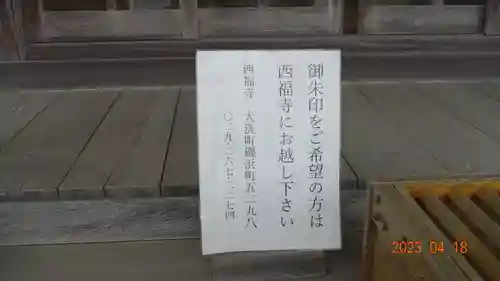 御朱印をご希望の方は
西福寺にお越し下さい
西福寺　大洗町磯浜五二九八
〇二九-二六七-二二七四
2023 04 18